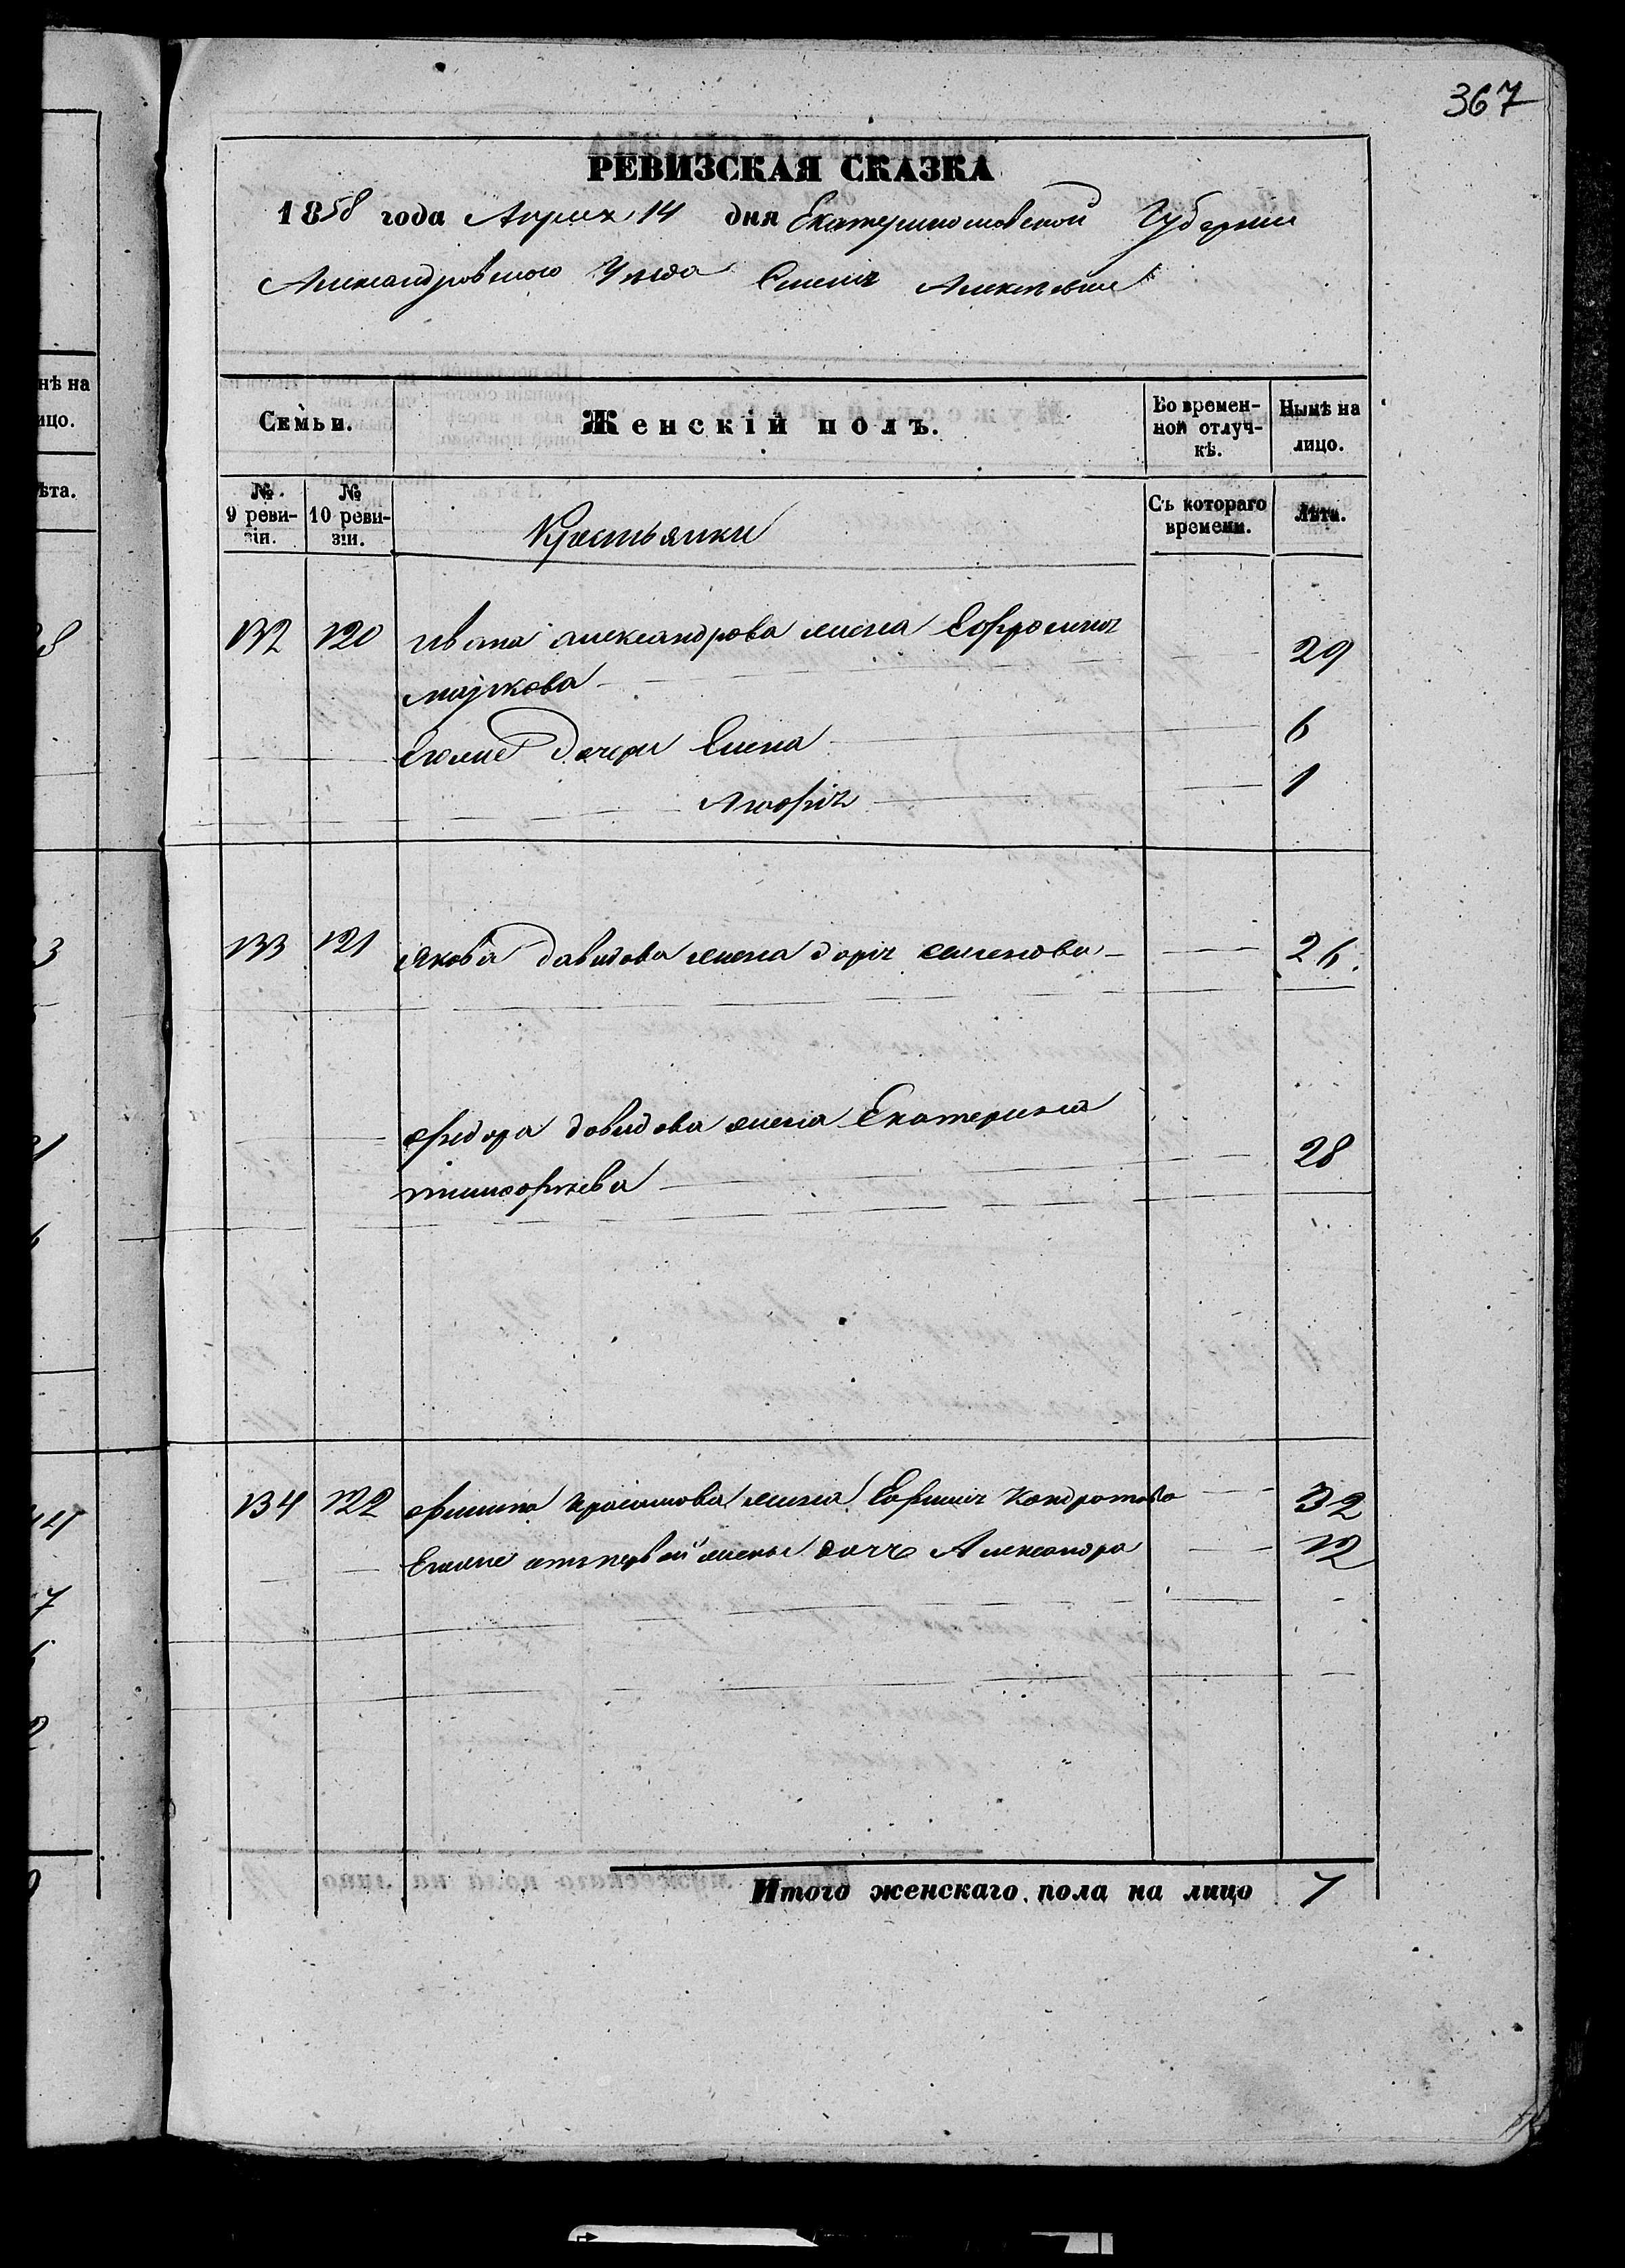 367
РЕВИЗСКАЯ СКАЗКА
1858 года Апреля 14 дня Екатеринославской Губернии
Александровского Уезда Селенія Алексѣевки
нѣ на
ицо.
ѣта.
Семьи.
Женскій полъ.
Во времен-
ной отлуч-
кѣ.
Нынѣ на
лицо.
№
9 реви-
зіи.
№
10 реви-
зіи.
Крестьянки
Съ котораго
времени.
Лѣта.
132 120 Ивана александрова жена Ефросинія
маркова 29
Его же дочери Елена 6
Марфія 1
133 121 якова давидова жена дарія семенова 26.
Федора давидова жена Екатерина
тимофѣева 28
134 122 филипа жена Ефимія Кондратова 32
Егоже отъ первой жены дочь Александра 12
Итого женскаго пола на лицо 7